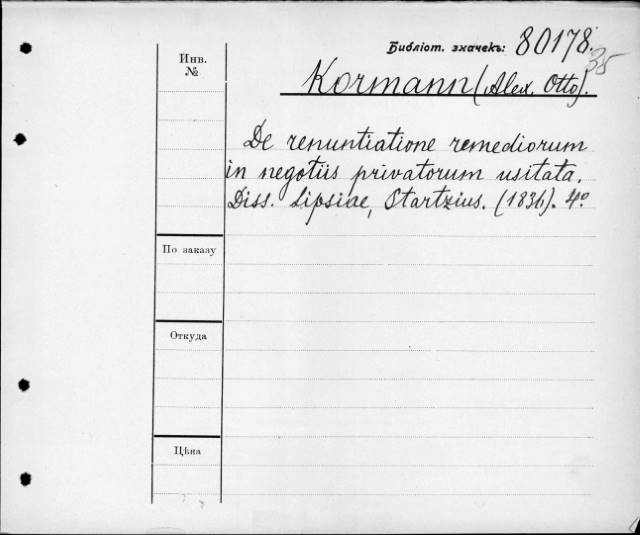 Библіот. значекъ: 80178.
35
Инв.
№
Kormann (Alex. Otto).
De renuntiatione remediorum
in negotiis privatorum usitata.
Diss. Lipsiae, Startzius. (1836). 4°
По заказу
Откуда
Цѣна